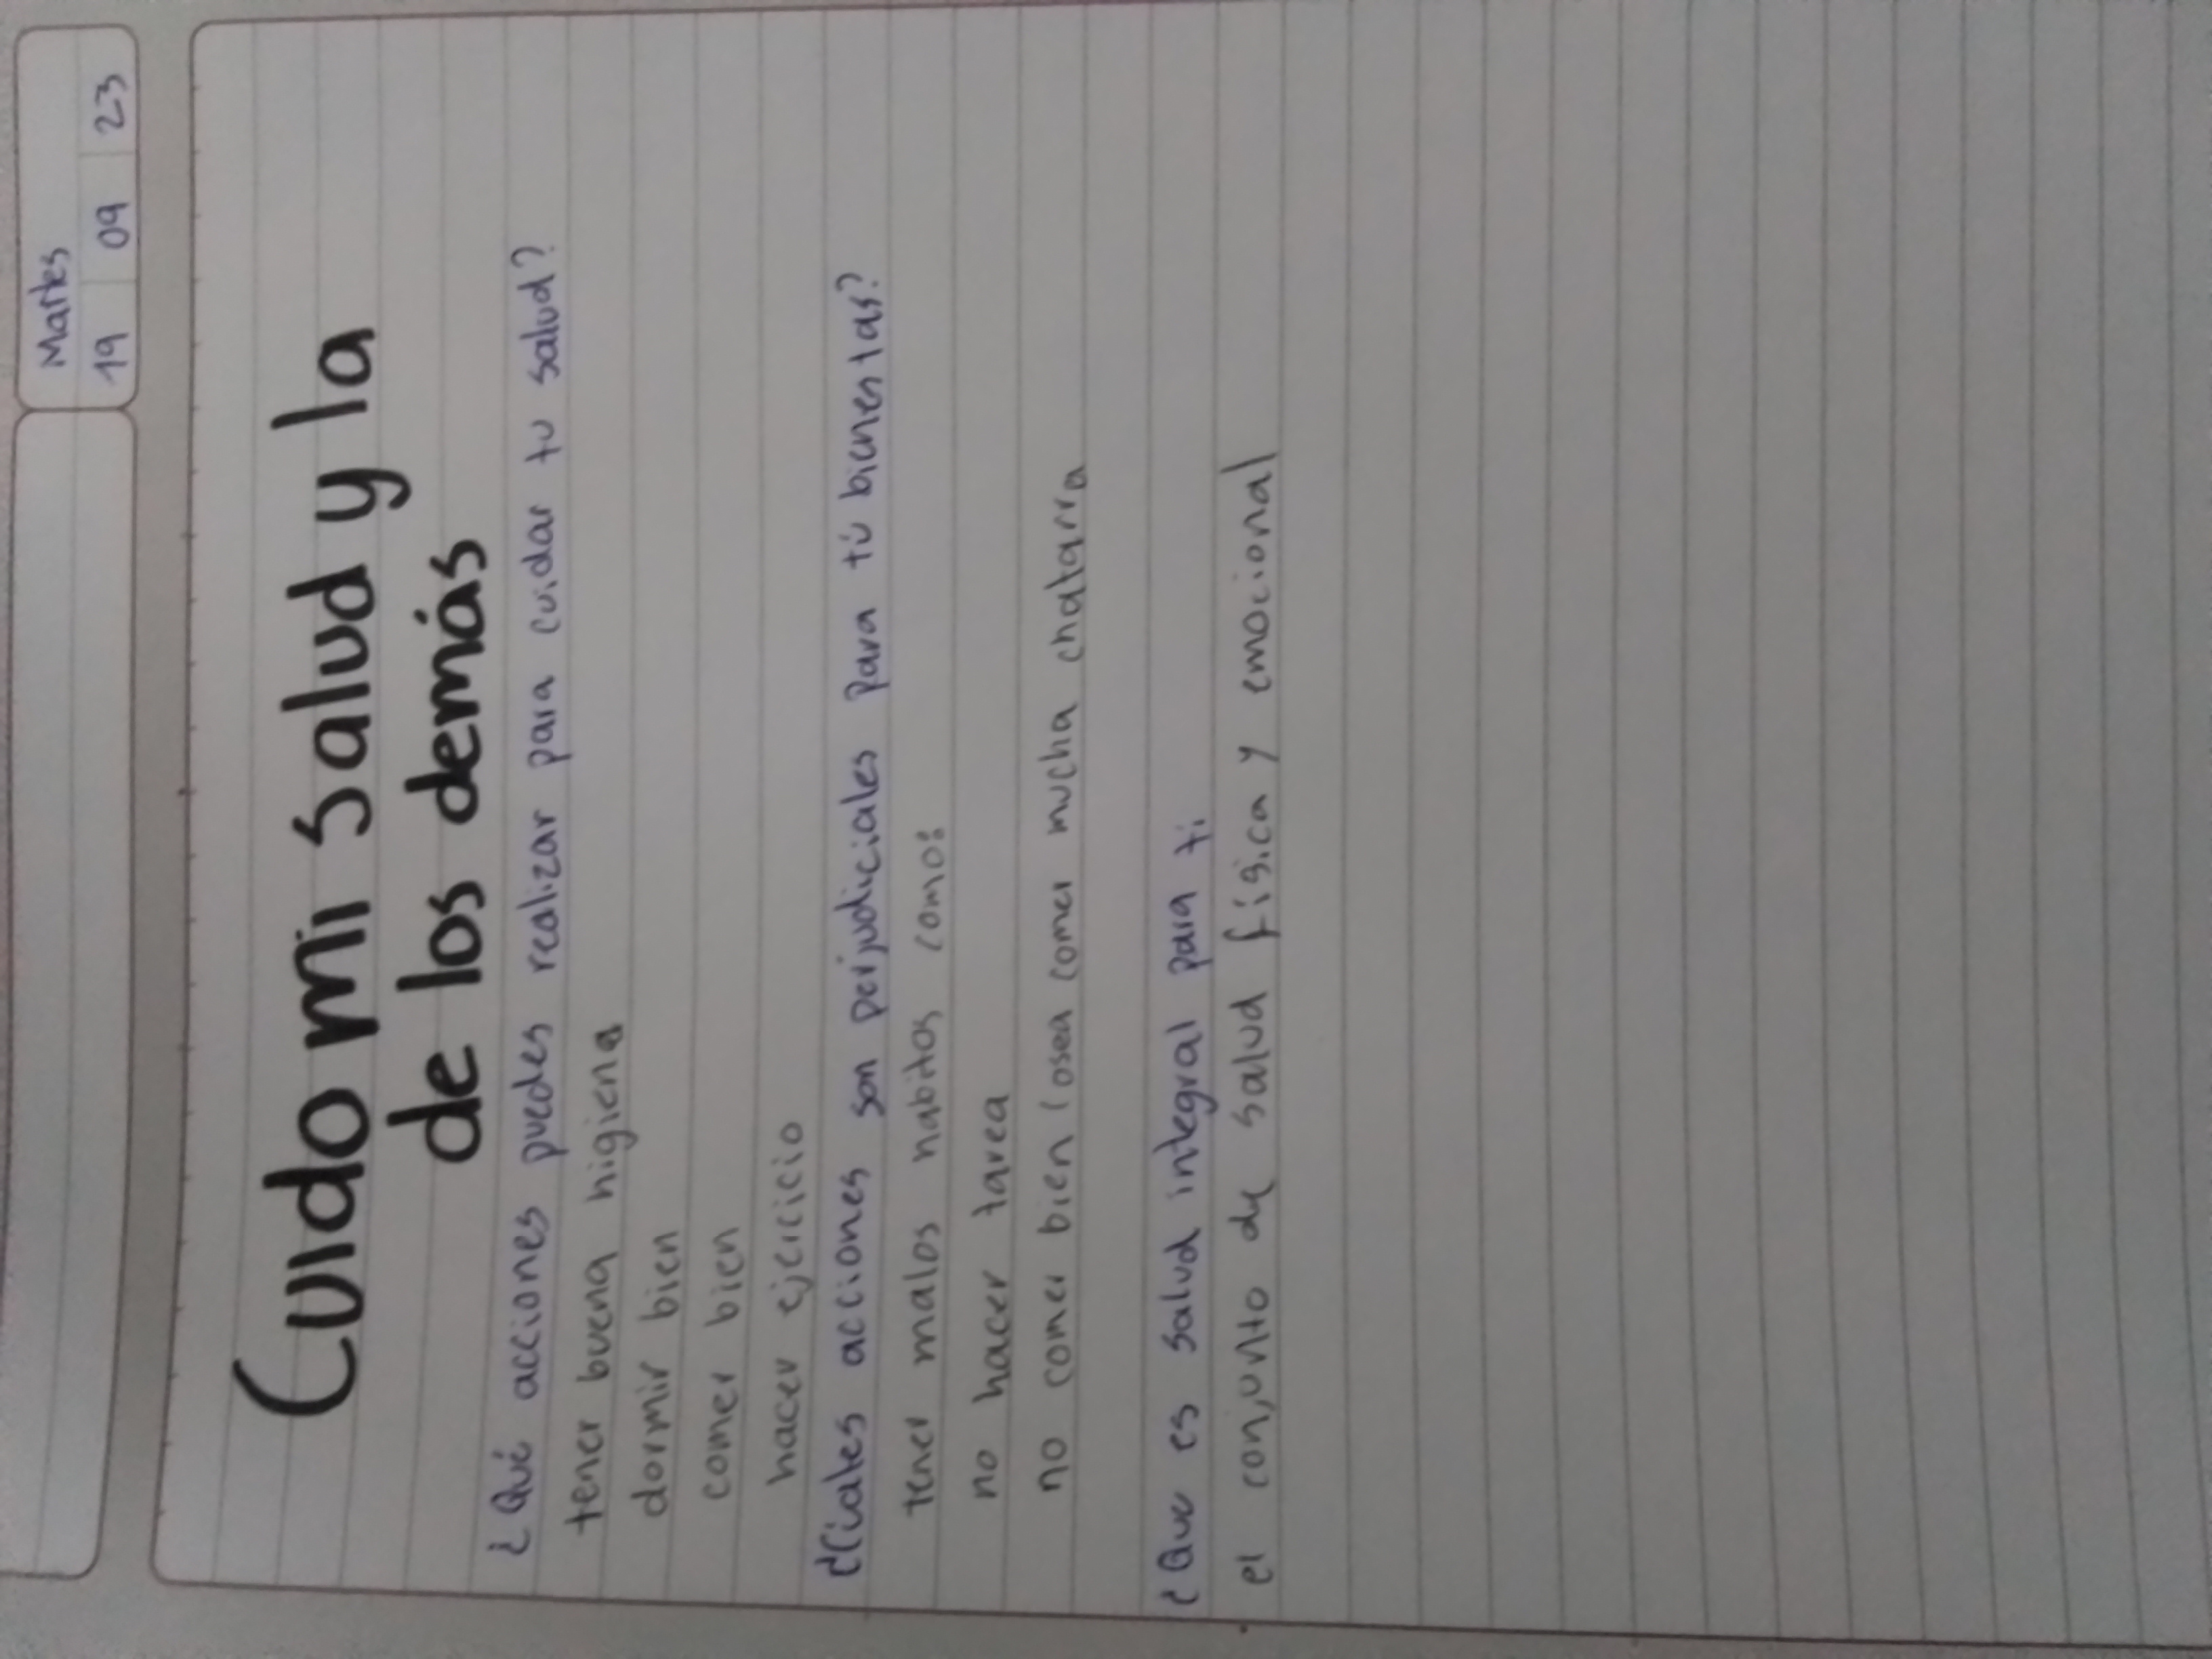 Martes
19 09 23
Cuido mi salud y la
de los demás
¿Qué acciones puedes realizar para cuidar tu salud?
tener buena higiena
dormir bien
comer bien
hacer ejercicio
¿Ciales acciones son perjudiciales para tú bienestas?
tener malos habitos como:
no hacer tarea
no comer bien (osea comer mucha chatarra
¿Que es salud integral para ti
el conjunto de salud física y emocional